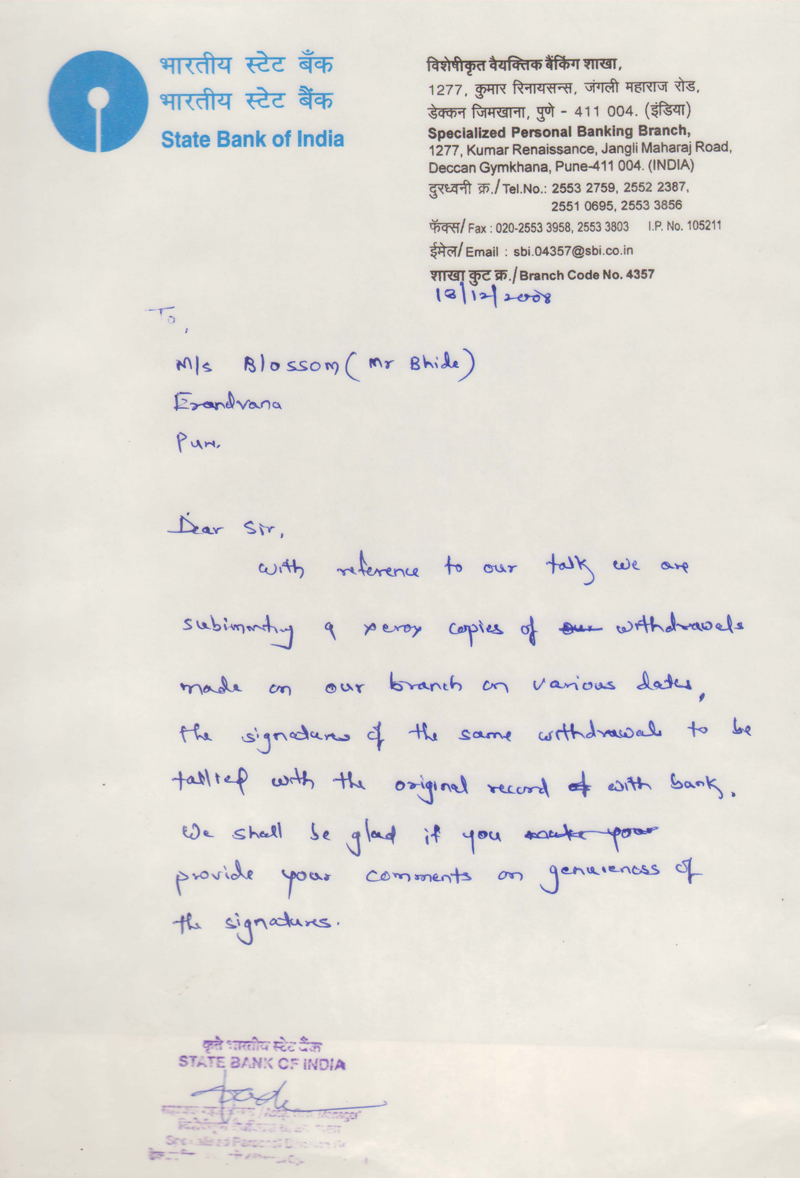 भारतीय स्टेट बँक
भारतीय स्टेट बैंक
State Bank of India
विशेषीकृत वैयक्तिक बैंकिंग शाखा,
1277, कुमार रिनायसन्स, जंगली महाराज रोड,
डेक्कन जिमखाना, पुणे - 411 004. (इंडिया)
Specialized Personal Banking Branch,
1277, Kumar Renaissance, Jangli Maharaj Road,
Deccan Gymkhana, Pune-411 004. (INDIA)
दुरध्वनी क्र./ Tel.No.: 2553 2759, 2552 2387,
2551 0695, 2553 3856
फॅक्स/ Fax : 020-2553 3958, 2553 3803 I.P. No. 105211
ईमेल/ Email : sbi.04357@sbi.co.in
शाखा कुट क्र./ Branch Code No. 4357
18/12/2008
To,
M/s Blossom (Mr Bhide)
Erandvana
Pune.
Dear Sir,
with reference to our talk we are
subimmting 9 xerox copies of our withdrawals
made on our branch on various dates,
the signatures of the same withdrawals to be
tallied with the original record of with bank.
We shall be glad if you make your
provide your comments on genuieness of
the signatures.
कृते भारतीय स्टेट बँक
STATE BANK OF INDIA
Manager
Specialised Personal Banking